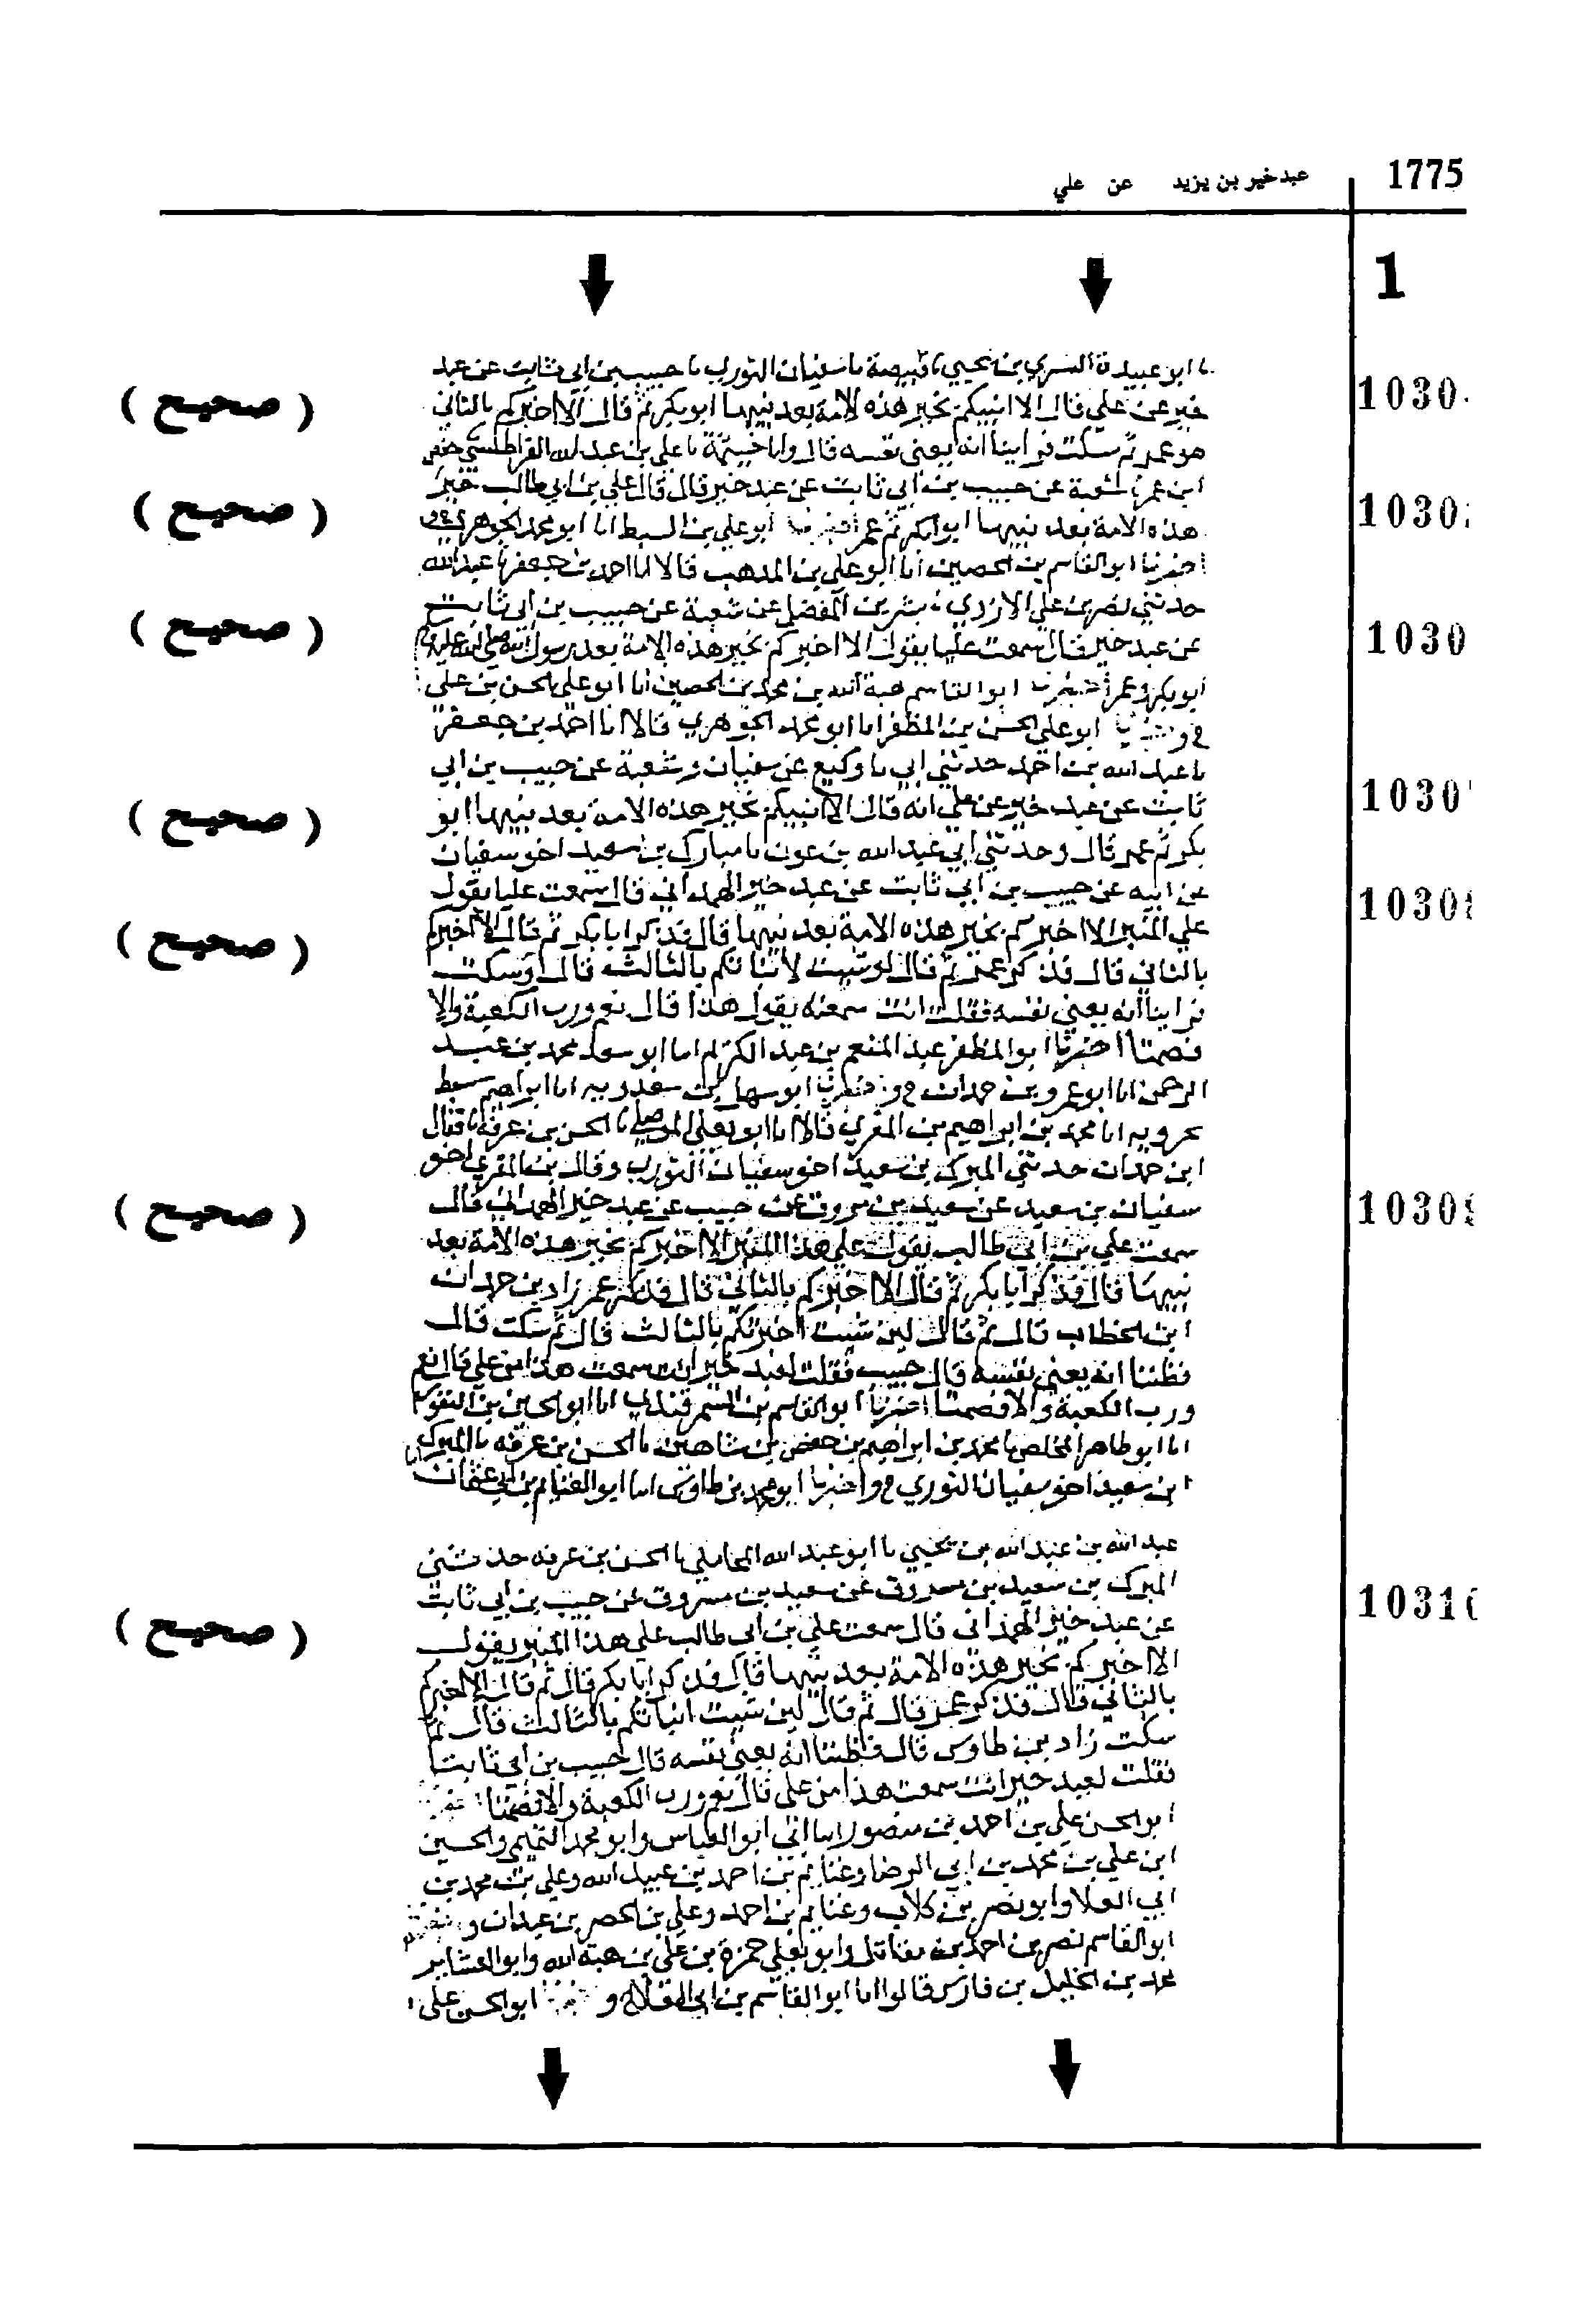 1775
عبدخير بن يزيد عن علي
1
نا ابو عبيدة السري بن يحيي نا قبيصة نا سفيان الثوري نا حبيب بن ابي ثابت عن عبد
خير عن علي قال الا انبيكم بخير هذه الامة بعد نبيها ابو بكر ثم قال الا اخبركم بالثاني
1030
( صحيح )
هو عمر ثم سكت فراينا انه يعني نفسه قال وانا خيثمة نا علي بن عبد الله القراطيسي حفص
ابن عمر نا شعبة عن حبيب بن ابي ثابت عن عبد خير قال قال علي بن ابي طالب خير
1030
( صحيح )
هذه الامة بعد نبيها ابو بكر ثم عمر ابو علي بن السبط انا ابو محمد الجوهري ح و
اخبرنا ابو القاسم بن الحصين انا ابو علي بن المذهب قالا انا احمد بن جعفر نا عبد الله
حدثني نصر بن علي الازدي نا بشر بن المفضل عن شعبة عن حبيب بن ابي ثابت
عن عبد خير قال سمعت عليا يقول الا اخبركم بخير هذه الامة بعد رسول الله صلى الله عليه وسلم
1030
( صحيح )
ابو بكر وعمر اخبرنا ابو القاسم هبة الله بن محمد بن الحصين انا ابو علي الحسن بن علي
ح و ابو علي الحسن بن المظفر انا ابو محمد الجوهري قالا انا احمد بن جعفر
نا عبد الله بن احمد حدثني ابي نا وكيع عن سفيان وشعبة عن حبيب بن ابي
ثابت عن عبد خير عن علي انه قال الا انبيكم بخير هذه الامة بعد نبيها ابو
1030
( صحيح )
بكر ثم عمر قال وحدثني ابي عبد الله بن عون نا مبارك بن سعيد اخو سفيان
عن ابيه عن حبيب بن ابي ثابت عن عبد خير الهمداني قال سمعت عليا يقول
1030
علي المنبر الا اخبركم بخير هذه الامة بعد نبيها قال فذكر ابا بكر ثم قال الا اخبركم
( صحيح )
بالثاني قال فذكر عمر ثم قال لو شيت لانباتكم بالثالث قال وسكت
فراينا انه يعني نفسه فقلت انت سمعته يقول هذا قال نعم ورب الكعبة والا
فصمتا اخبرنا ابو المظفر عبد المنعم بن عبد الكريم انا ابو سعد محمد بن عبد
الرحمن انا ابو عمرو بن حمدان ح و ابو سهل بن سعدويه انا ابراهيم سبط
بحرويه انا محمد بن ابراهيم بن المقري قالا انا ابو يعلي الموصلي نا الحسن بن عرفة فقال
ابن حمدان حدثني المبرك بن سعيد اخو سفيان الثوري وقال بن المقري اخو
سفيان بن سعيد عن سعيد بن مسروق عن حبيب عن عبد خير الهمداني قال
10309
( صحيح )
سمعت علي بن ابي طالب يقول علي هذا المنبر الا اخبركم بخير هذه الامة بعد
نبيها قال فذكر ابا بكر ثم قال الا اخبركم بالثاني قال فذكر عمر زاد بن حمدان
ابن الخطاب قال ثم قال لين شيت اخبرتكم بالثالث قال ثم سكت قال
فظننا انه يعني نفسه قال حبيب فقلت لعبد خير انت سمعت هذا من علي قال نعم
ورب الكعبة والا فصمتا اخبرنا ابو القاسم بن السمرقندي انا ابو الحسين بن النقور
انا ابو طاهر المخلص نا محمد بن ابراهيم بن حفص بن شاهين نا الحسن بن عرفه نا المبرك
ابن سعيد اخو سفيان الثوري ح و اخبرنا ابو محمد بن طاوس انا ابو الغنايم بن ابي عثمان انا
عبد الله بن عبيد الله بن يحيي نا ابو عبد الله المحاملي نا الحسن بن عرفه حدثني
المبرك بن سعيد بن مسروق عن سعيد بن مسروق عن حبيب بن ابي ثابت
1031
عن عبد خير الهمداني قال سمعت علي بن ابي طالب علي هذا المنبر يقول
( صحيح )
الا اخبركم بخير هذه الامة بعد نبيها قال فذكر ابا بكر قال ثم قال الا اخبركم
بالثاني قال فذكر عمر قال ثم قال لين شيت انباتكم بالثالث قال ثم
سكت زاد بن طاوس قال فظننا انه يعني نفسه قال حبيب بن ابي ثابت
فقلت لعبد خير انت سمعت هذا من علي قال نعم ورب الكعبة والا فصمتا
ابو الحسن علي بن احمد بن منصور انا ابي ابو العباس وابو محمد التميمي والحسين
ابن علي بن محمد بن ابي الرضا وغنايم بن احمد بن عبيد الله وعلي بن محمد بن
ابي العلا وابو نصر بن كلاب وغنايم بن احمد وعلي بن الخضر بن عبدان و
ابو القاسم نصر بن احمد بن مقاتل وابو يعلي حمزة بن علي بن هبة الله وابو العشاير
محمد بن الخليل بن فارس قالوا انا ابو القاسم بن ابي العلا و ابو الحسن علي